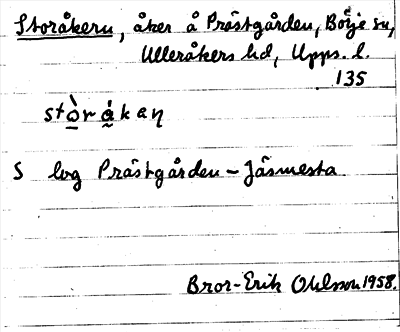 Storåkern, åker å Prästgården, Bälje sn,
Ulleråkers hd, Upps. l.
135
stòrákaɳ
S lvg Prästgården – Jäsmesta
Bror-Erik Ohlsson 1958.